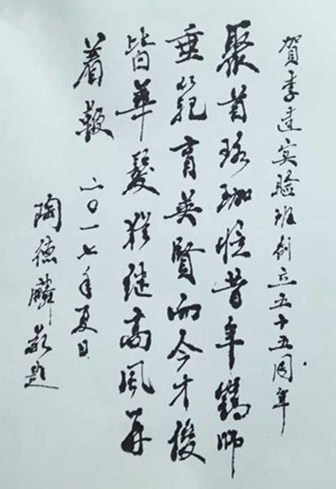 賀李達实验班创立五十五周年
聚首珞珈憶昔年鶴師
垂範育英賢而今才俊
皆華髮猶继高風再
着鞭 二〇一七年夏日
陶德麟敬題